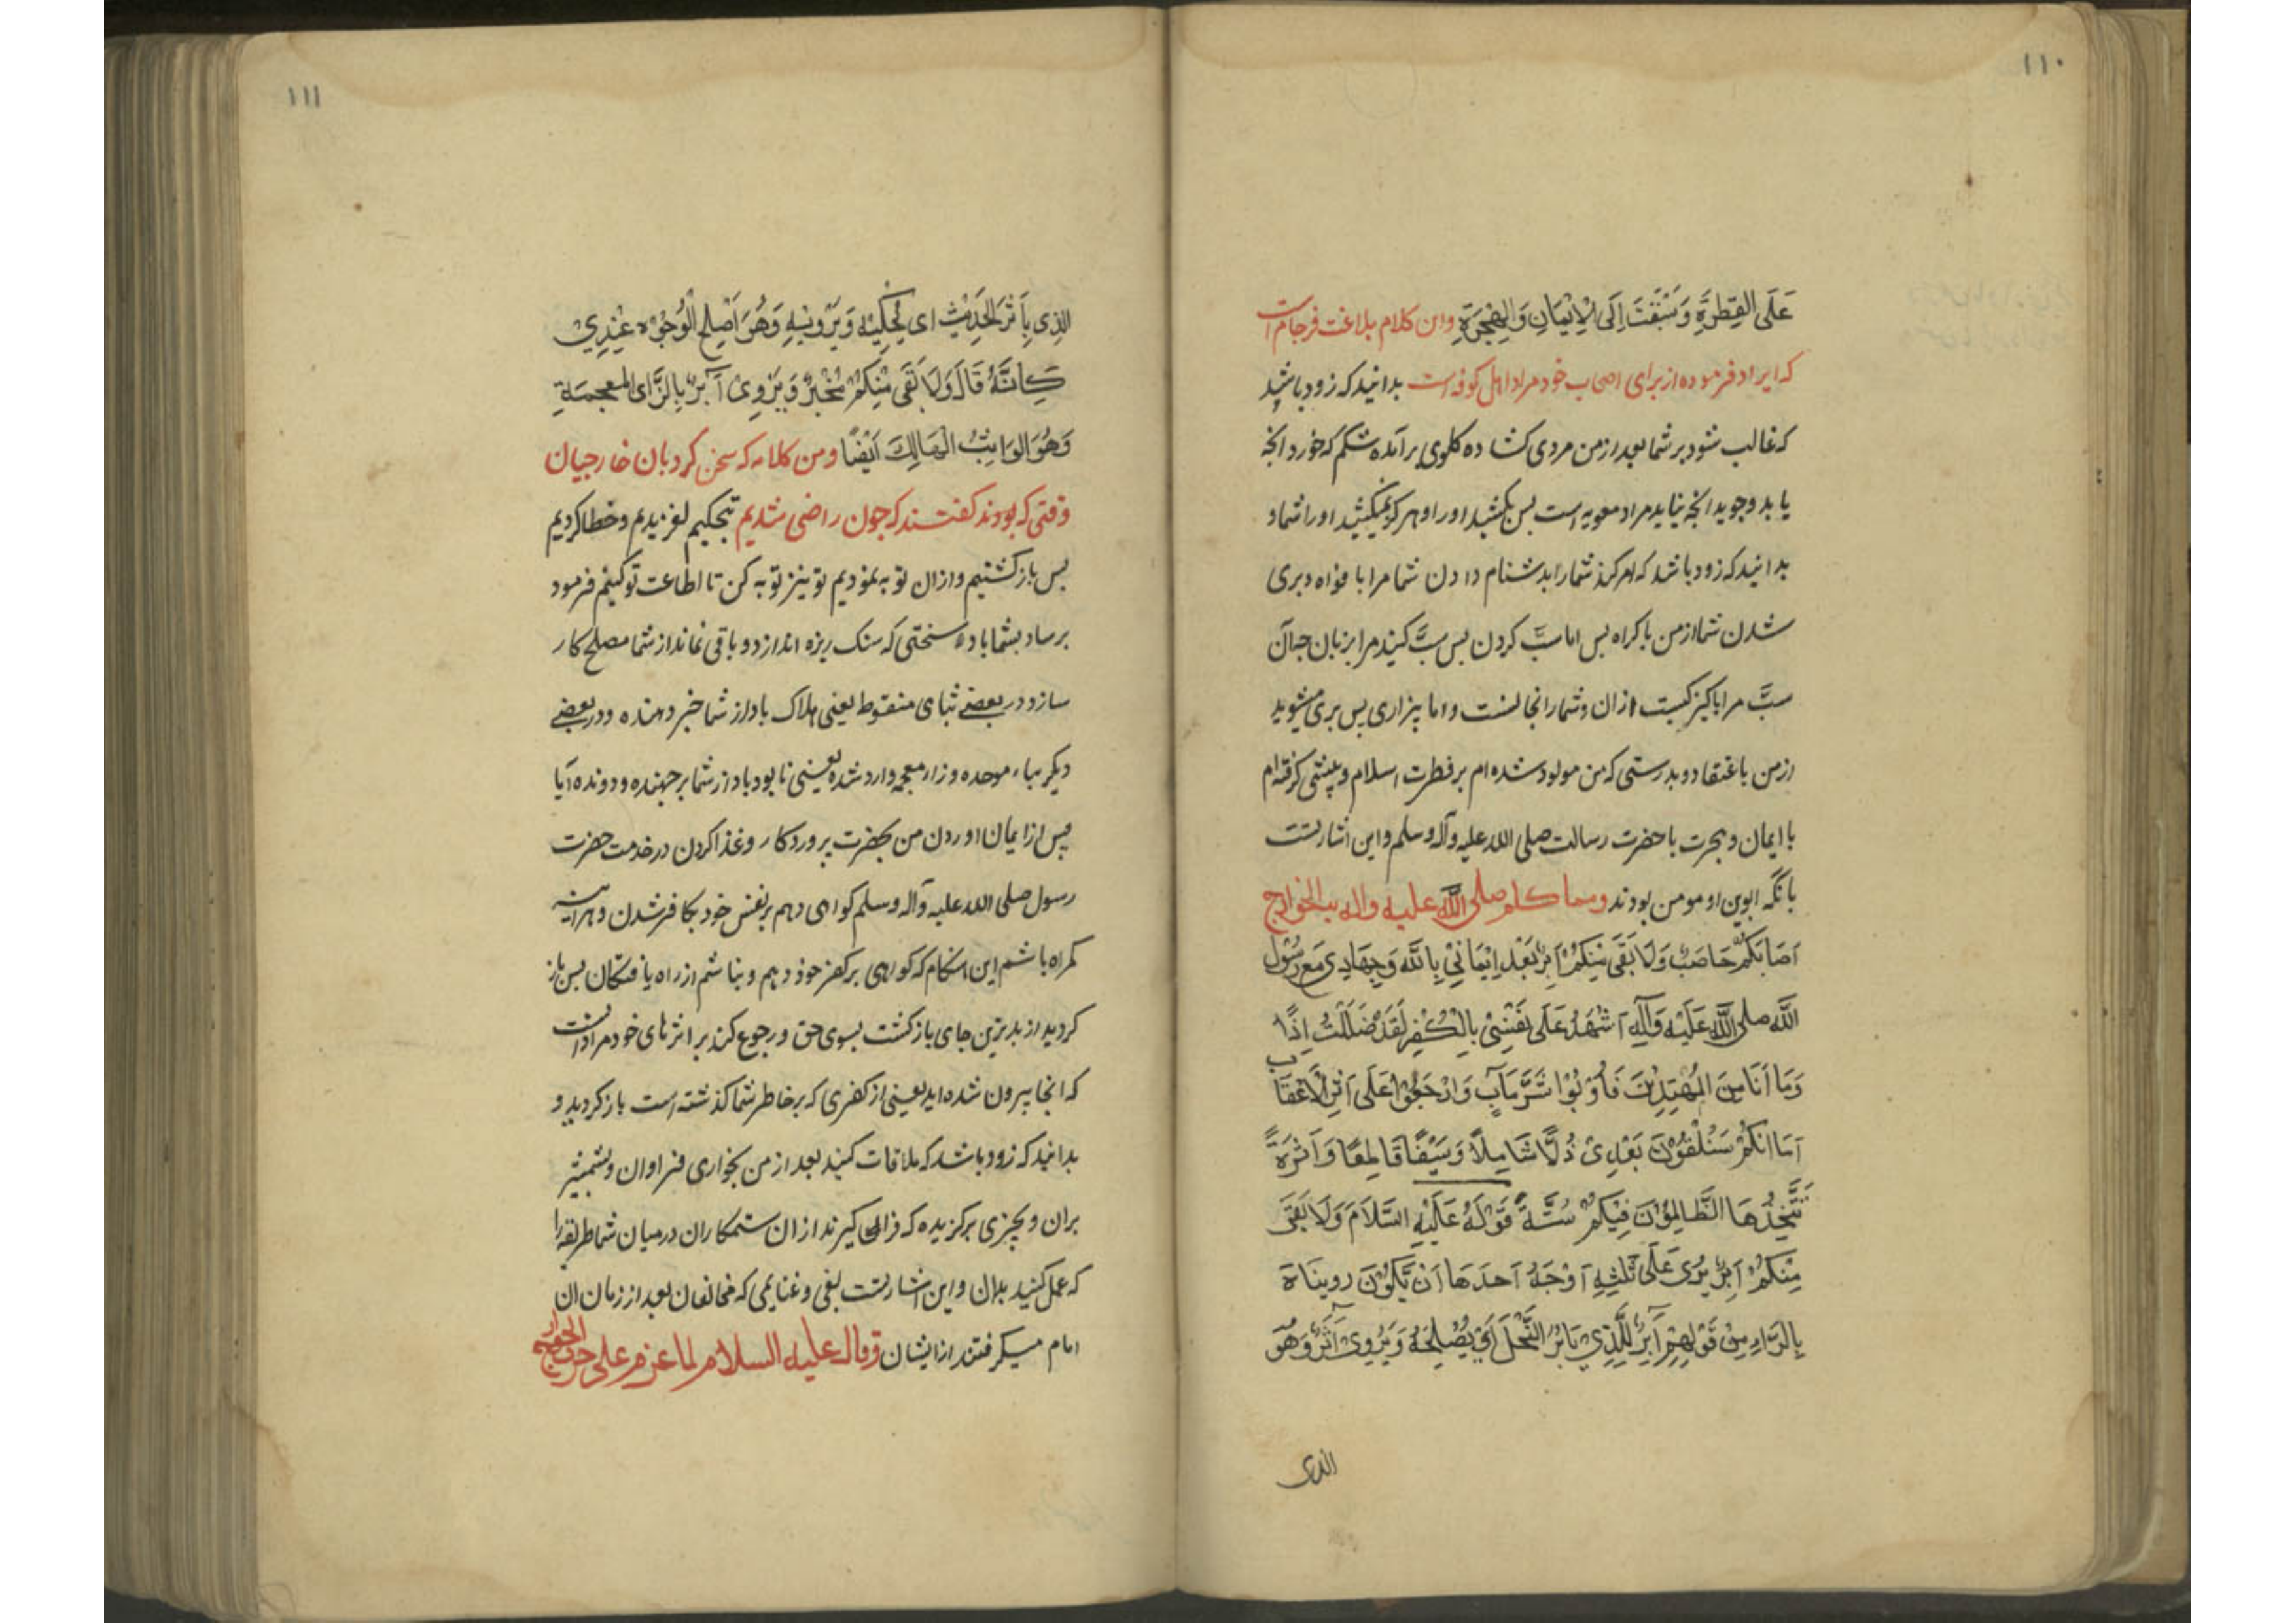 ١١٠
عَلَى الفِطرَةِ وَسَبَقْتُ اِلَى الْاِيْمَانِ وَالهِجْرَةِ واین کلام بلاغت فرجام است
که ایراد فرموده از برای اصحاب خود مراد اهل کوفه است بدانید که زود باشد
که غالب شود بر شما بعد از من مردی کشاده کلوی برآمده شکم که خورد انچه
یابد وجوید انچه نیابد مراد معویه است بس بکشید اورا و هرکز نمیکشید اورا شما و
بدانید که زود باشد که امر کند شما را بدشنام دادن شما مرا با فواه و بری
شدن شما از من باکراه بس اما سبَّ کردن بس سبَّ کنید مرا بزبان جه آن
سبَّ مرا پاکیزکیست ازان وشما را نجاتست واما بیزاری بس بری مشوید
از من باعتقاد و بدرستی که من مولود شده ام بر فطرت اسلام و پیشی کرفته ام
با ایمان و هجرت با حضرت رسالت صلی الله علیه وآله وسلم و این اشارتست
بانکه ابوین او مومن بودند ومن کلام صلی الله علیه واله الخوارج
اَصَابَكُمْ حَاصِبٌ وَلَا بَقَى مِنكُمْ اٰبِرٌ بَعْدَ اِيْمَانِيْ بِاللّٰهِ وَجِهَادِيْ مَعَ رَسُوْل
اللّٰه صلى اللّٰه عَلَيْهِ وَآلِهٖ اَشْهَدُ عَلٰى نَفْسِيْ بِالْكُفْرِ لَقَدْ ضَلَلْتُ اِذًا
وَمَا اَنَا مِنَ المُهْتَدِيْنَ فَاُوْبُوْا شَرَّ مَآبٍ وَارْجِعُوْا عَلٰى اَثَرِ الْاَعْقَاب
اَمَا اِنَّكُمْ سَتَلْقَوْنَ بَعْدِيْ ذُلًّا شَامِلًا وَسَيْفًا قَاطِعًا وَاَثَرَةً
يَتَّخِذُهَا الظَّالِمُوْنَ فِيْكُمْ سُنَّةً قَوْلُهُ عَلَيْهِ السَّلَامَ وَلَا بَقَى
مِنكُمْ اٰبِرٌ يُرْوٰى عَلٰى ثَلٰثَةِ اَوْجُهٍ اَحَدُهَا اَنْ يَّكُوْنَ
بِالرَّاءِ مِنْ قَوْلِهِمْ اٰبِرٌ لِلَّذِيْ يَابُرُ النَّخْلَ اَيْ يُصْلِحُهُ وَيُرْوٰى اٰثِرٌ وَهُوَ
الذی
١١١
الَّذِي يَأثُرُ الحَدِيْثَ اي يَحْكِيْهِ وَيَرْوِيْهِ وَهُوَ اَصْلَحُ الْوُجُوْهِ عِنْدِيْ
كَاَنَّهُ قَالَ وَلَا بَقَى مِنكُمْ مُخْبِرٌ وَيُرْوٰى اٰبِزٌ بِالزَّاى المُعجَمَةِ
وَهُوَ الوَاثِبُ الهَالِكُ اَيْضًا ومن کلامه که سخن کرد بان خارجیان
وقتی که بودند کفتند که جون راضی شدیم بتحکیم لغزیدیم وخطا کردیم
بس باز کشتیم وازان توبه نمودیم تو نیز توبه کن تا اطاعت تو کنیم فرمود
برساد بشما باد سختی که سنک ریزه اندازد و باقی نماند از شما مصلح کار
ساز و در بعضی بثای منقوط یعنی هلاک باد از شما خبر دهنده و در بعضی
دیکر بباء موحده وزاء معجمه وارد شده یعنی نابود باد از شما برجهنده و دونده آیا
پس از ایمان اوردن من بحضرت پروردکار وغزا کردن در خدمت حضرت
رسول صلی الله علیه وآله وسلم کواهی دهم بر نفس خود بکافر شدن و هراینه
کمراه باشم این هنکام که کواهی بر کفر خود دهم و نباشم از راه یافتکان بس باز
کردید از بدترین جای باز کشت بسوی حق و رجوع کنید بر اثرهای خود مراد انست
که انجا بیرون شده اید یعنی از کفری که بر خاطر شما کذشته است باز کردید و
بدانید که زود باشد که ملاقات کنید بعد از من بخواری فراوان وبشمشیر
بران و بچیزی برکزیده که فراکیرند ازان ستمکاران در میان شما طریقه را
که عمل کنید بدان و این اشارتست بفی و غنایمی که مخالفان بعد از زمان ان
امام میکرفتند از ایشان وقال علیه السلام لما عزم علی حرب الخوارج